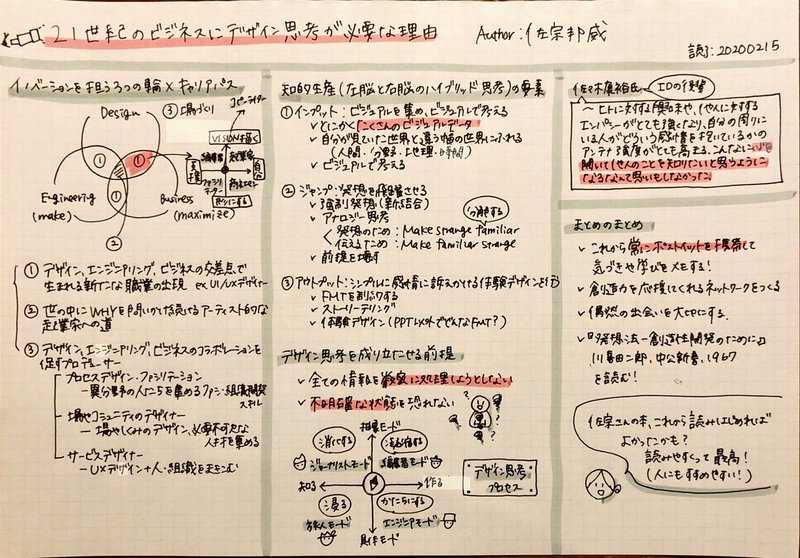 21世紀のビジネスにデザイン思考が必要な理由
Author:佐宗邦威
読了:20200215
イノベーションを担う3つの輪×キャリアパス
Design
③場づくり
コピーライター
VISIONを描く
編集者
起業家
支援
自分
ファシリテーター
形にする
Engineering
(make)
Business
(maximize)
①
①
①
②
①デザイン、エンジニアリング、ビジネスの交差点で
生まれる新たな職業の出現 ex UI/UXデザイナー
②世の中にWHYを問いかけ続けるアーティスト的な
起業家への道
③デザイン、エンジニアリング、ビジネスのコラボレーションを
促すプロデューサー
プロセスデザイン・ファシリテーション
―異分野の人たちを集めるファシ・組織開発
スキル
場やコミュニティのデザイナー
―場やしくみのデザイン、必要不可欠な
人材を集める
サービスデザイナー
―UXデザイン+人・組織をまきこむ
知的生産(左脳と右脳のハイブリッド思考)の要素
①インプット:ビジュアルを集め、ビジュアルで考える
✓とにかくたくさんのビジュアルデータ
✓自分が見ていた世界と違う幅の世界にふれる
(人間・分野・地理・時間)
✓ビジュアルで考える
②ジャンプ:発想を飛躍させる
✓強制発想(新結合)
✓アナロジー思考
分解する
発想のため:Make strange familiar
伝えるため:Make familiar strange
✓前提を壊す
③アウトプット:シンプルに感情に訴えかける体験デザインを行う
✓FMTを制約する
✓ストーリーテリング
✓体験デザイン(PPT以外でどんなFMT?)
デザイン思考を成り立たせる前提
✓全ての情報を厳密に処理しようとしない
✓不明確な状態を恐れない
抽象モード
消化する
ジャーナリストモード
編集者モード
知る
作る
浸る
かたちにする
旅人モード
エンジニアモード
具体モード
デザイン思考
プロセス
佐々木康裕氏
IDの後輩
～ヒトに対する興味や、他人に対する
エンパシーがとても強くなり、自分の周りに
いる人がどういう感情を抱いているかの
アンテナ強度がとても高まる。こんなに心
開いて他人のことを知りたいと思うように
なるなんて思いもしなかった。
まとめのまとめ
✓これから常にポストイットを携帯して
気づきや学びをメモする!
✓創造力を応援してくれるネットワークをつくる
✓偶然の出会いを大切にする。
✓『発想法―創造性開発のために』
川喜田二郎、中公新書、1967
を読む!
佐宗さんの本、これから読みはじめれば
よかったかも?
読みやすくって最高!
(人にもすすめやすい!)